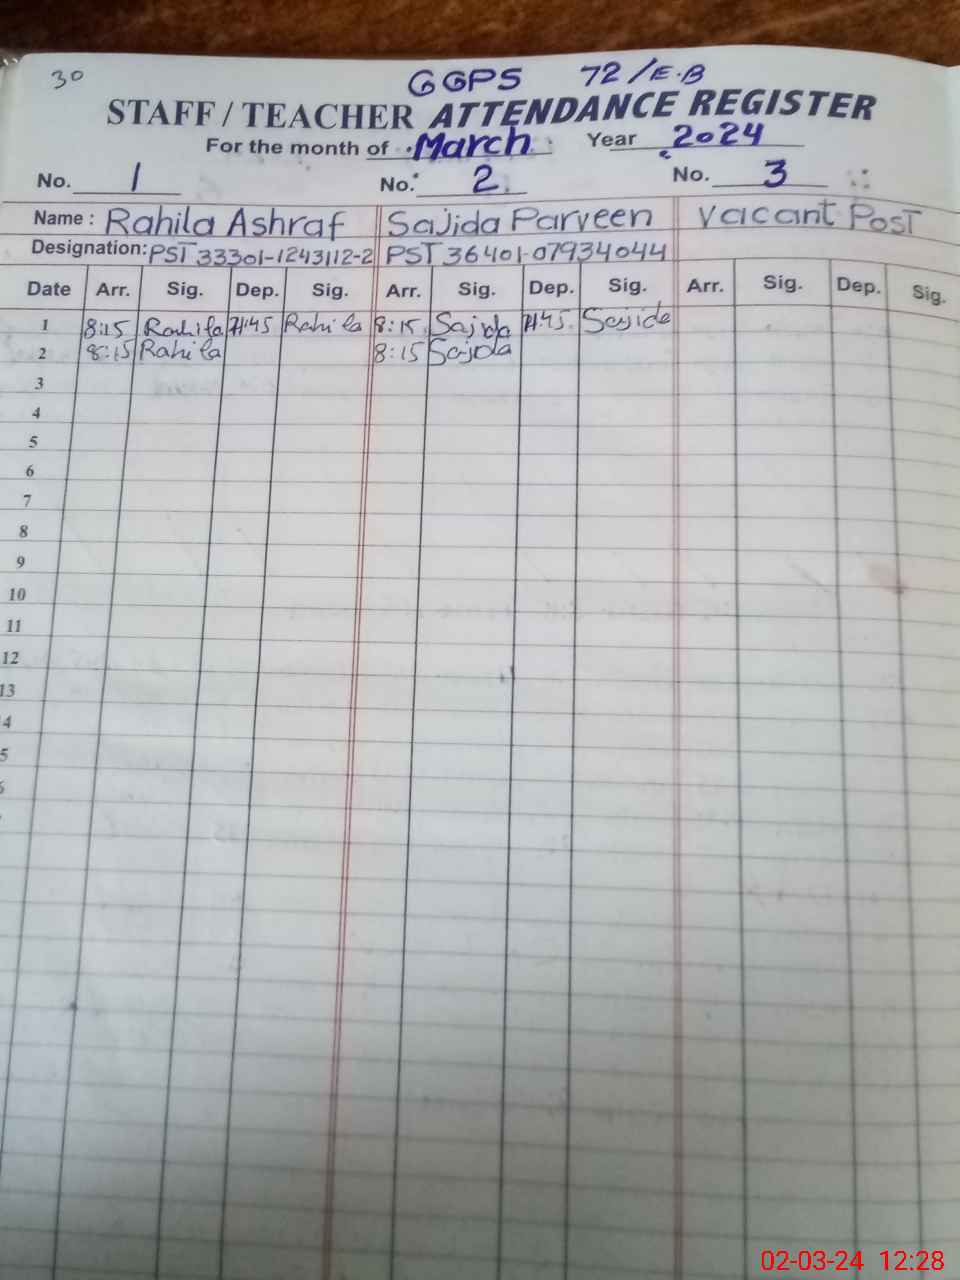 30
GGPS 72/E.B
STAFF / TEACHER ATTENDANCE REGISTER
For the month of March Year 2024
No. 1 No. 2 No. 3
Name : Rahila Ashraf Sajida Parveen Vacant Post
Designation: PST 33301-1243112-2 PST 36401-07934044
Date Arr. Sig. Dep. Sig. Arr. Sig. Dep. Sig. Arr. Sig. Dep. Sig.
1 8:15 Rahila 11:45 Rahila 8:15 Sajida 11:45 Sajida
2 8:15 Rahila 8:15 Sajida
3
4
5
6
7
8
9
10
11
12
13
4
5
02-03-24 12:28